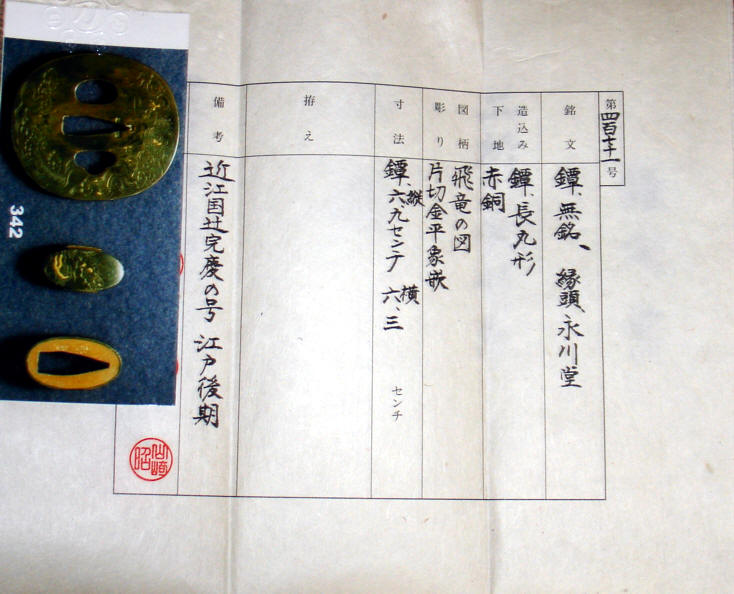 第四百七十一号
銘文
鐔、無銘、縁頭、永川堂
造込み
下地
鐔、長丸形
赤銅
図柄
彫り
飛竜の図
片切金平象嵌
寸法
鐔、縦六、九センチ 横六、三センチ
拵え
備考
近江国辻完慶の号 江戸後期
山崎昭
342